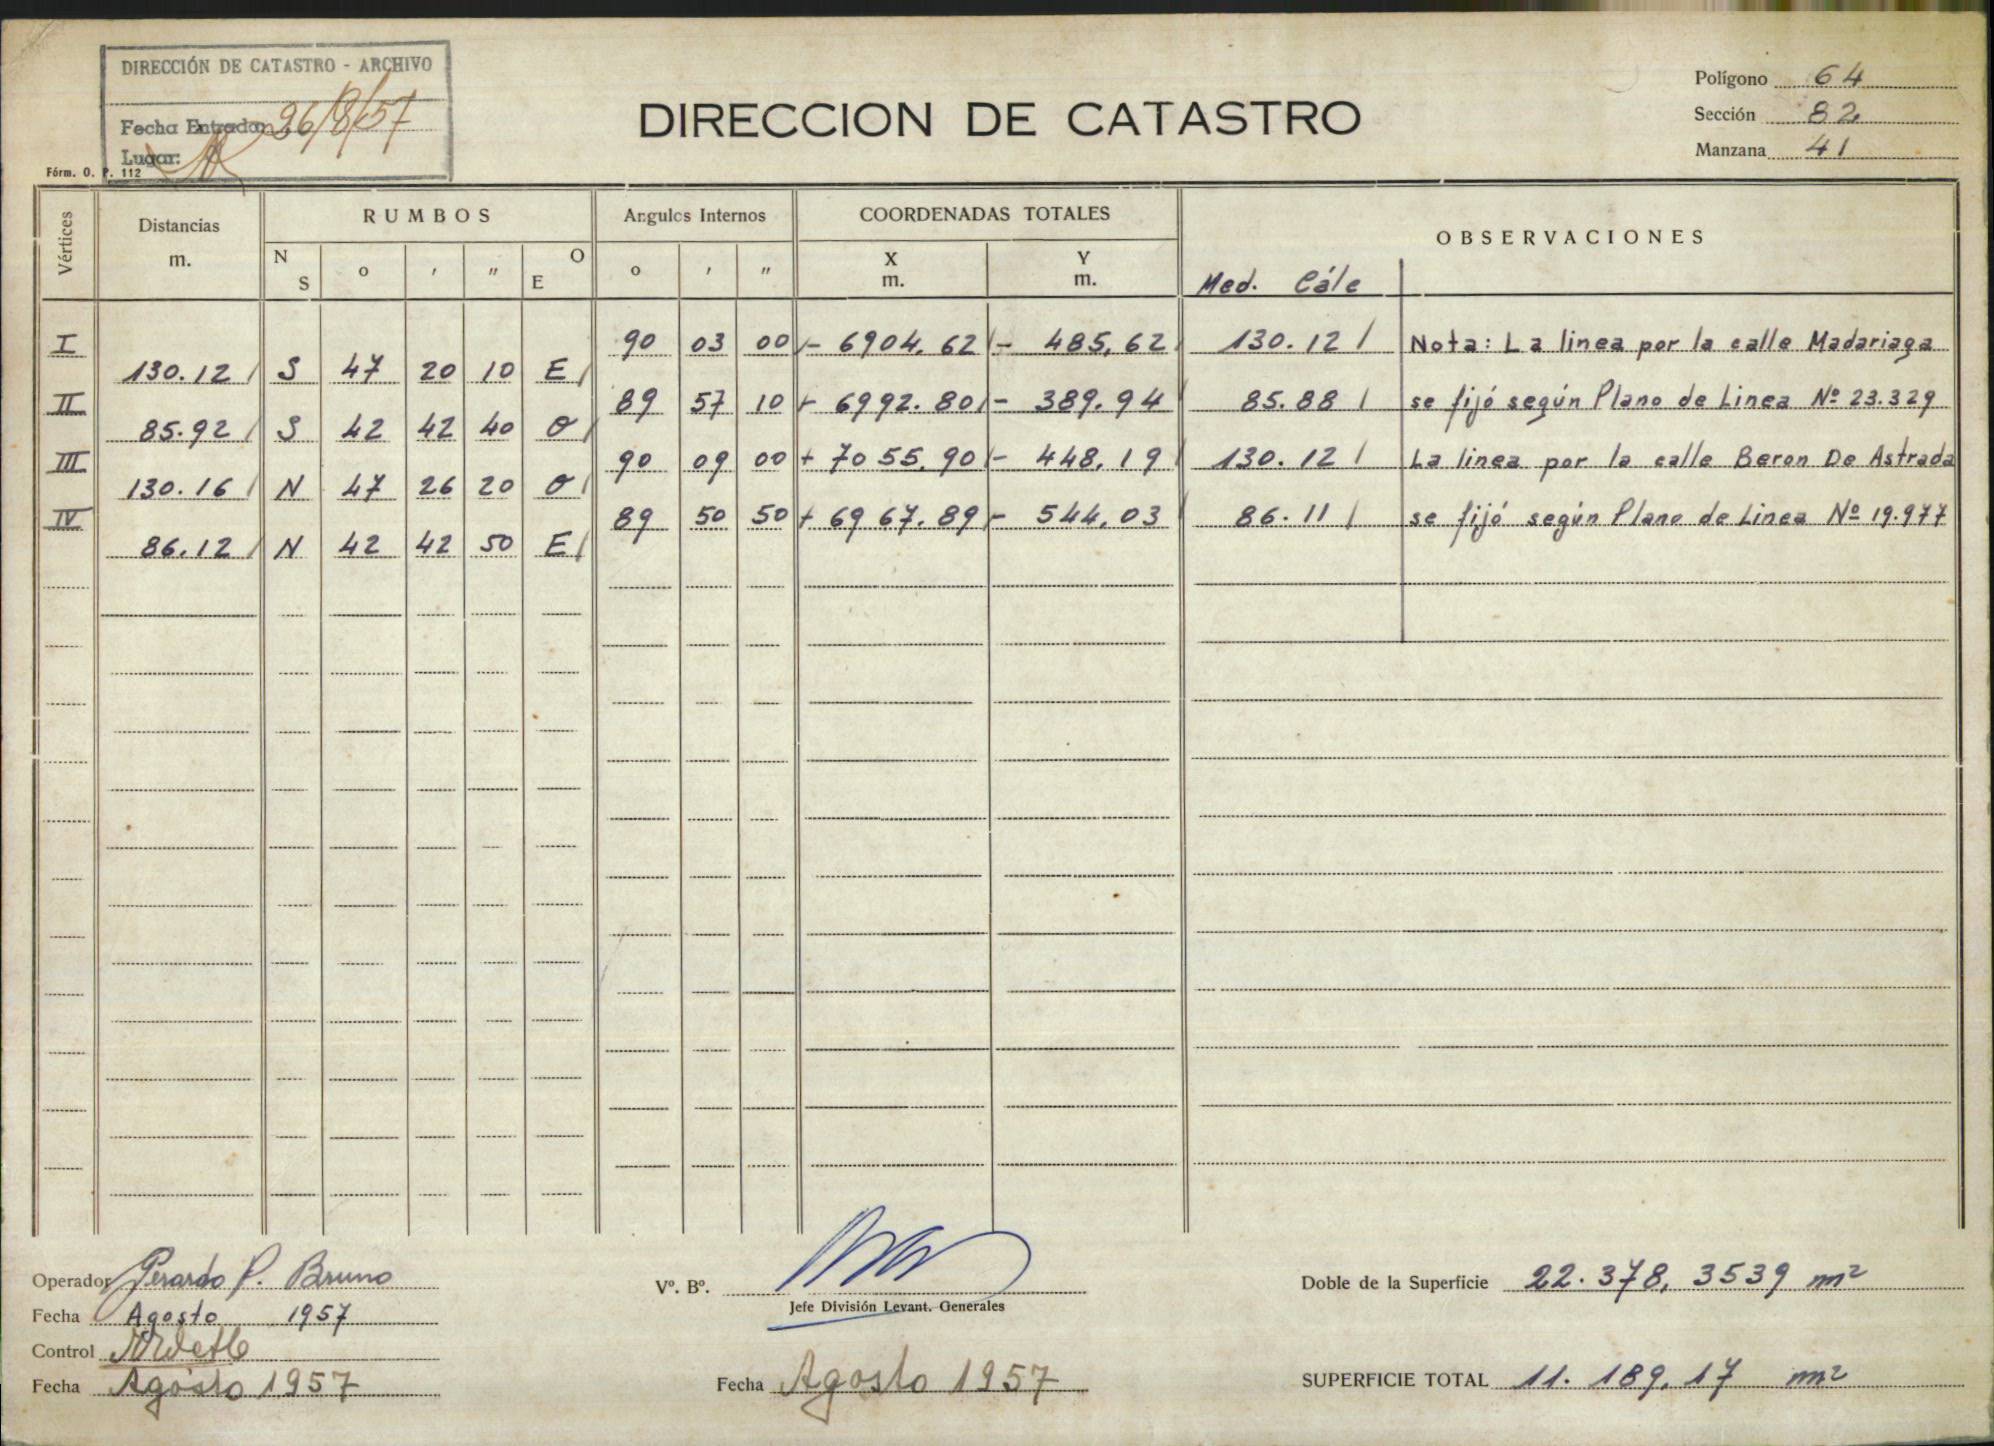 DIRECCIÓN DE CATASTRO - ARCHIVO
Fecha Entrada: 26/8/57
Lugar:
Fórm. O. P. 112
DIRECCION DE CATASTRO
Polígono 64
Sección 82
Manzana 41
Vértices
Distancias
m.
RUMBOS
N S ° ' " O E
Angulos Internos
° ' "
COORDENADAS TOTALES
X m.
Y m.
OBSERVACIONES
Med. Cálc
I 90 03 00 - 6904.62 - 485,62 130.12 Nota: La linea por la calle Madariaga
130.12 S 47 20 10 E
II 89 57 10 + 6992.80 - 389.94 85.88 se fijó según Plano de Linea Nº 23.329
85.92 S 42 42 40 O
III 90 09 00 + 7055.90 - 448.19 130.12 La linea por la calle Beron De Astrada
130.16 N 47 26 20 O
IV 89 50 50 + 6967.89 - 544.03 86.11 se fijó según Plano de Linea Nº 19.977
86.12 N 42 42 50 E
Operador Gerardo P. Bruno
Fecha Agosto 1957
Control
Fecha Agosto 1957
Vº. Bº.
Jefe División Levant. Generales
Fecha Agosto 1957
Doble de la Superficie 22.378,3539 m²
SUPERFICIE TOTAL 11.189,17 m²